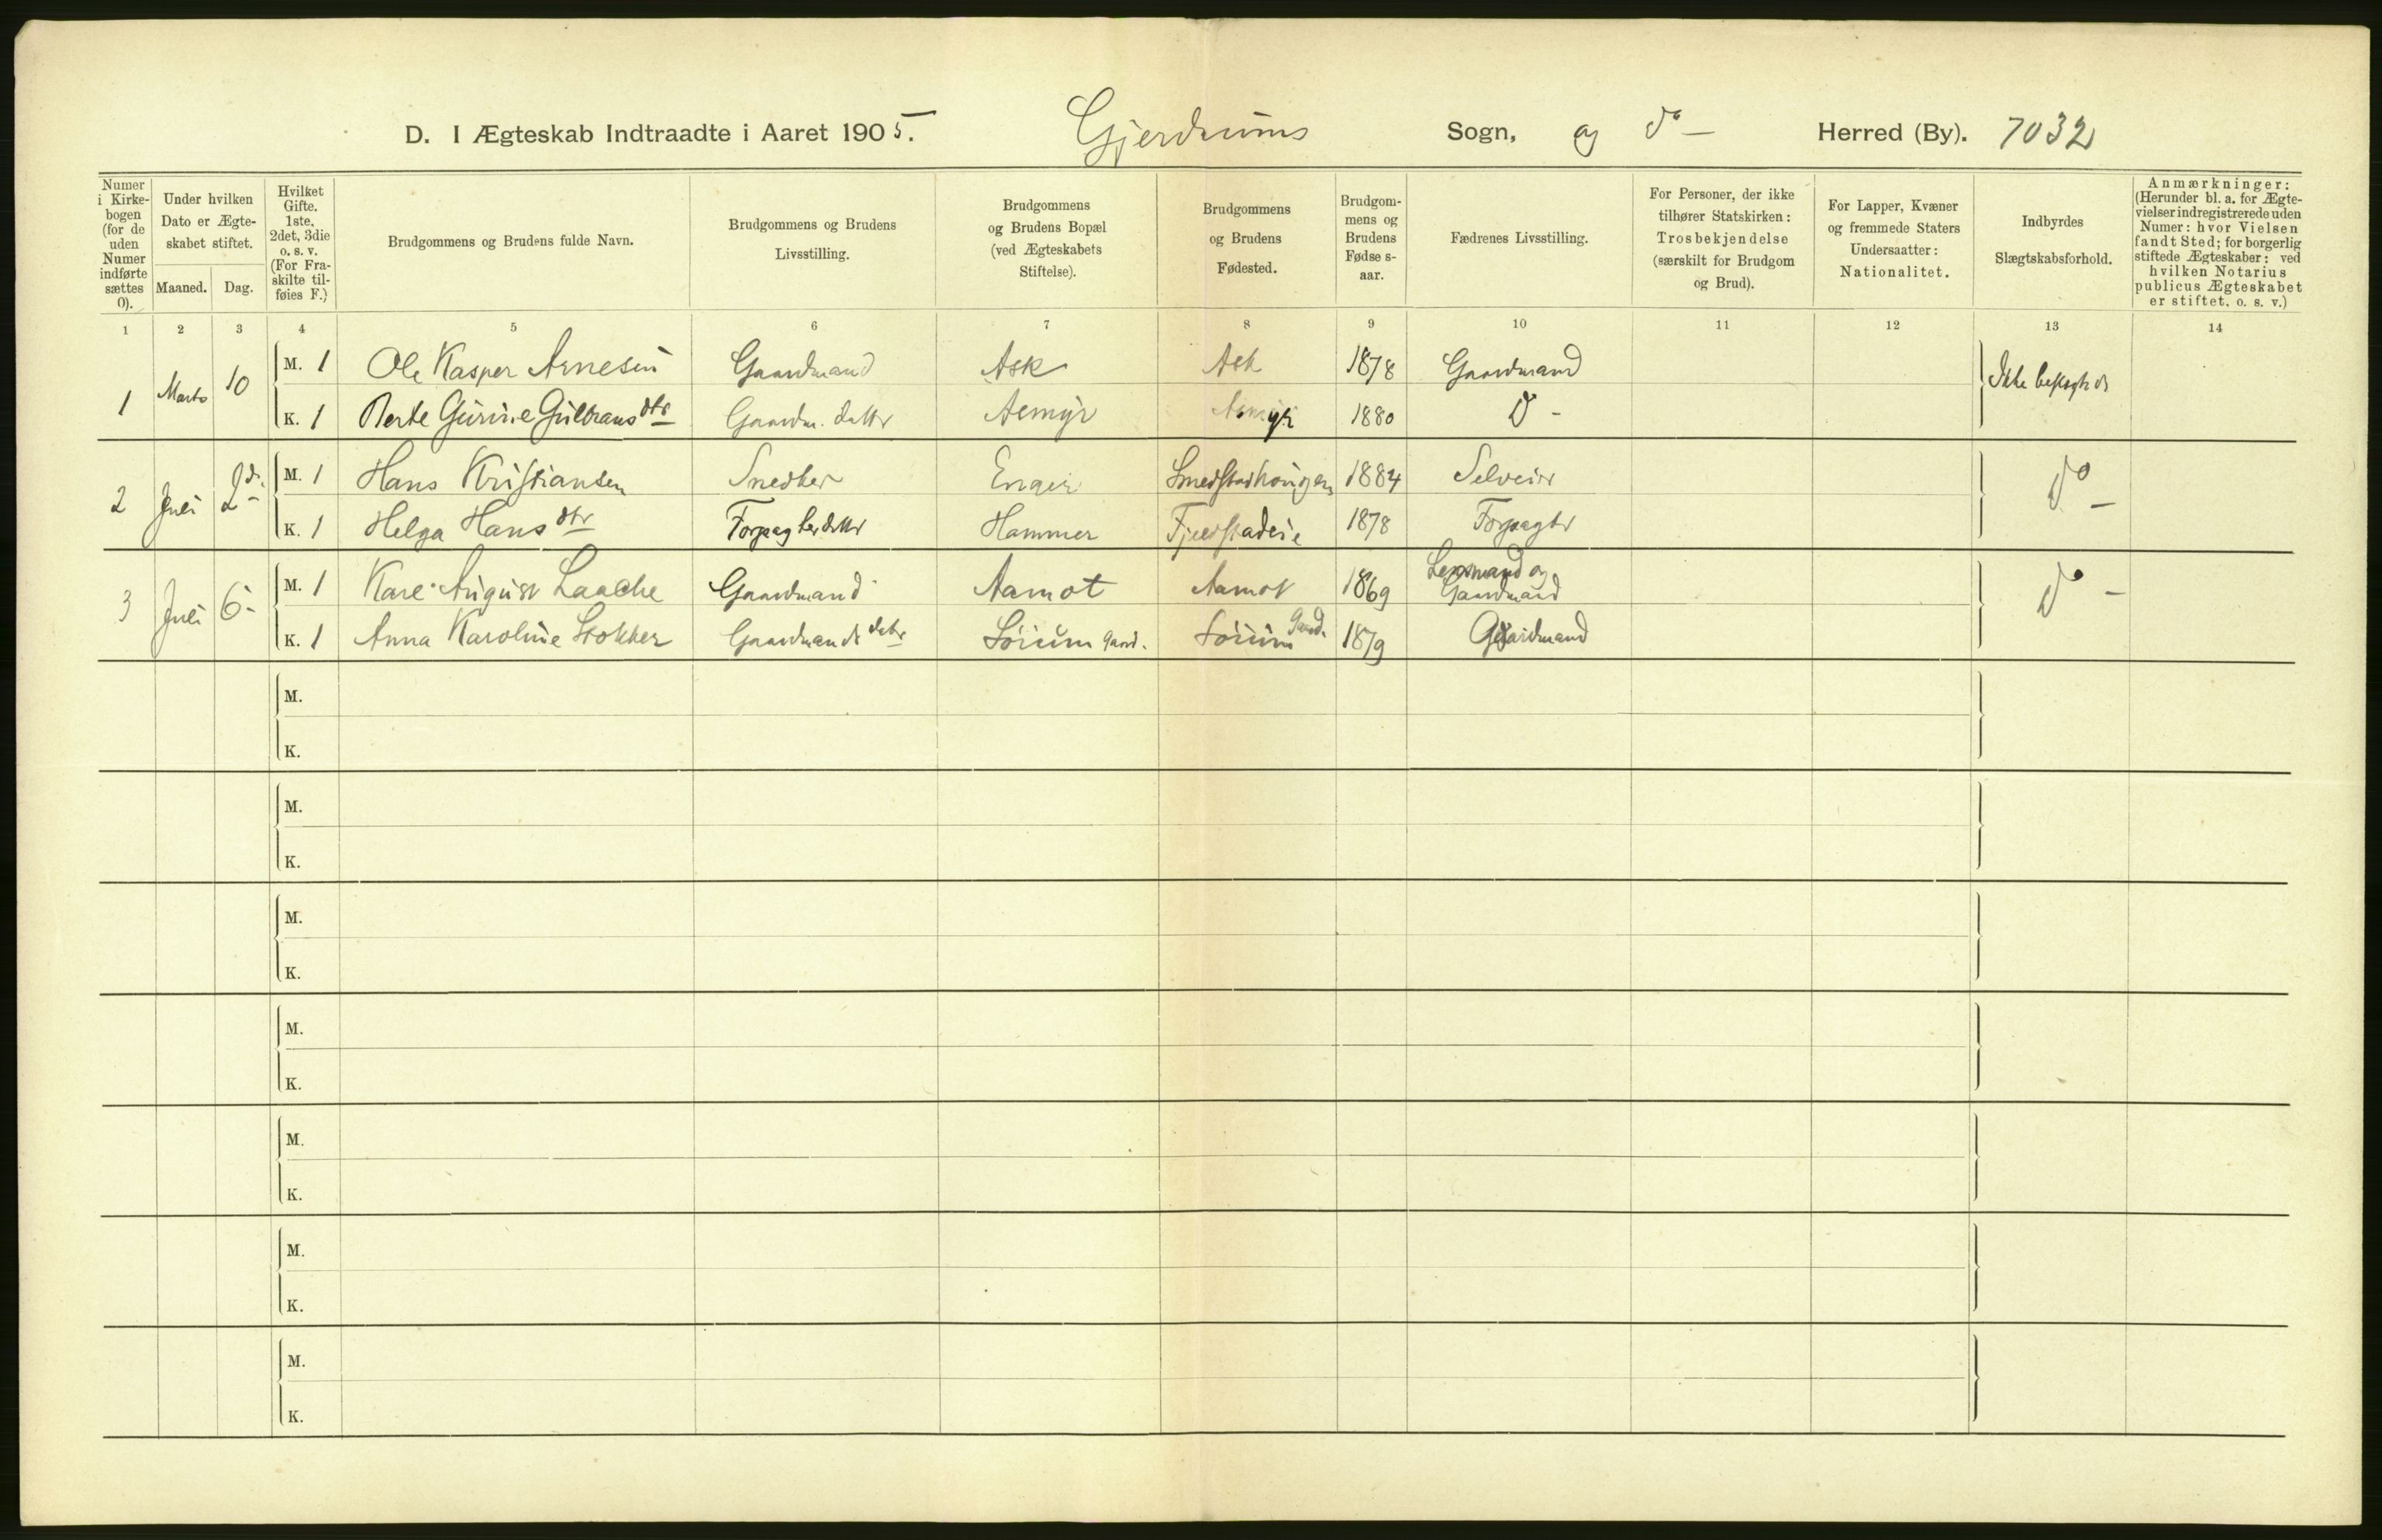 D. I Ægteskab Indtraadte i Aaret 1905. Gjerdrums Sogn, og do – Herred (By). 7032
Numer i Kirke-
bogen
(for de
uden
Numer
indførte
sættes
0).
Under hvilken
Dato er Ægte-
skabet stiftet.
Maaned. Dag.
Hvilket
Gifte.
1ste,
2det, 3die
o. s. v.
(For Fra-
skilte til-
føies F.)
Brudgommens og Brudens fulde Navn.
Brudgommens og Brudens
Livsstilling.
Brudgommens
og Brudens Bopæl
(ved Ægteskabets
Stiftelse).
Brudgommens
og Brudens
Fødested.
Brudgom-
mens og
Brudens
Fødse s-
aar.
Fædrenes Livsstilling.
For Personer, der ikke
tilhører Statskirken:
Trosbekjendelse
(særskilt for Brudgom
og Brud).
For Lapper, Kvæner
og fremmede Staters
Undersaatter:
Nationalitet.
Indbyrdes
Slægtskabsforhold.
Anmærkninger:
(Herunder bl. a. for Ægte-
vielser indregistrerede uden
Numer: hvor Vielsen
fandt Sted; for borgerlig
stiftede Ægteskaber: ved
hvilken Notarius
publicus Ægteskabet
er stiftet, o. s. v.)
1 2 3 4 5 6 7 8 9 10 11 12 13 14
1 Marts 10 M. 1 Ole Kasper Arnesen Gaardmand Ask Ask 1878 Gaardmand Ikke beslægtede
K. 1 Berte Gurine Gulbransdtr Gaardm. datter Asmyr Asmyr 1880 Do -
2 Juli 2 M. 1 Hans Kristiansen Snedker Enger 1884 Selveier Do –
K. 1 Helga Hansdtr Forpagterdatter Hammer Fjeldstadeie 1878 Forpagter
3 Juli 6 - M. 1 Karl August Laache Gaardmand Aamot Aamot 1869 Lensmand og Gaardmand Do –
K. 1 Anna Karoline Stokker Gaardmandsdatr Sörum Gaard. Sörum Gaard. 1879 Gaardmand
M.
K.
M.
K.
M.
K.
M.
K.
M.
K.
M.
K.
M.
K.